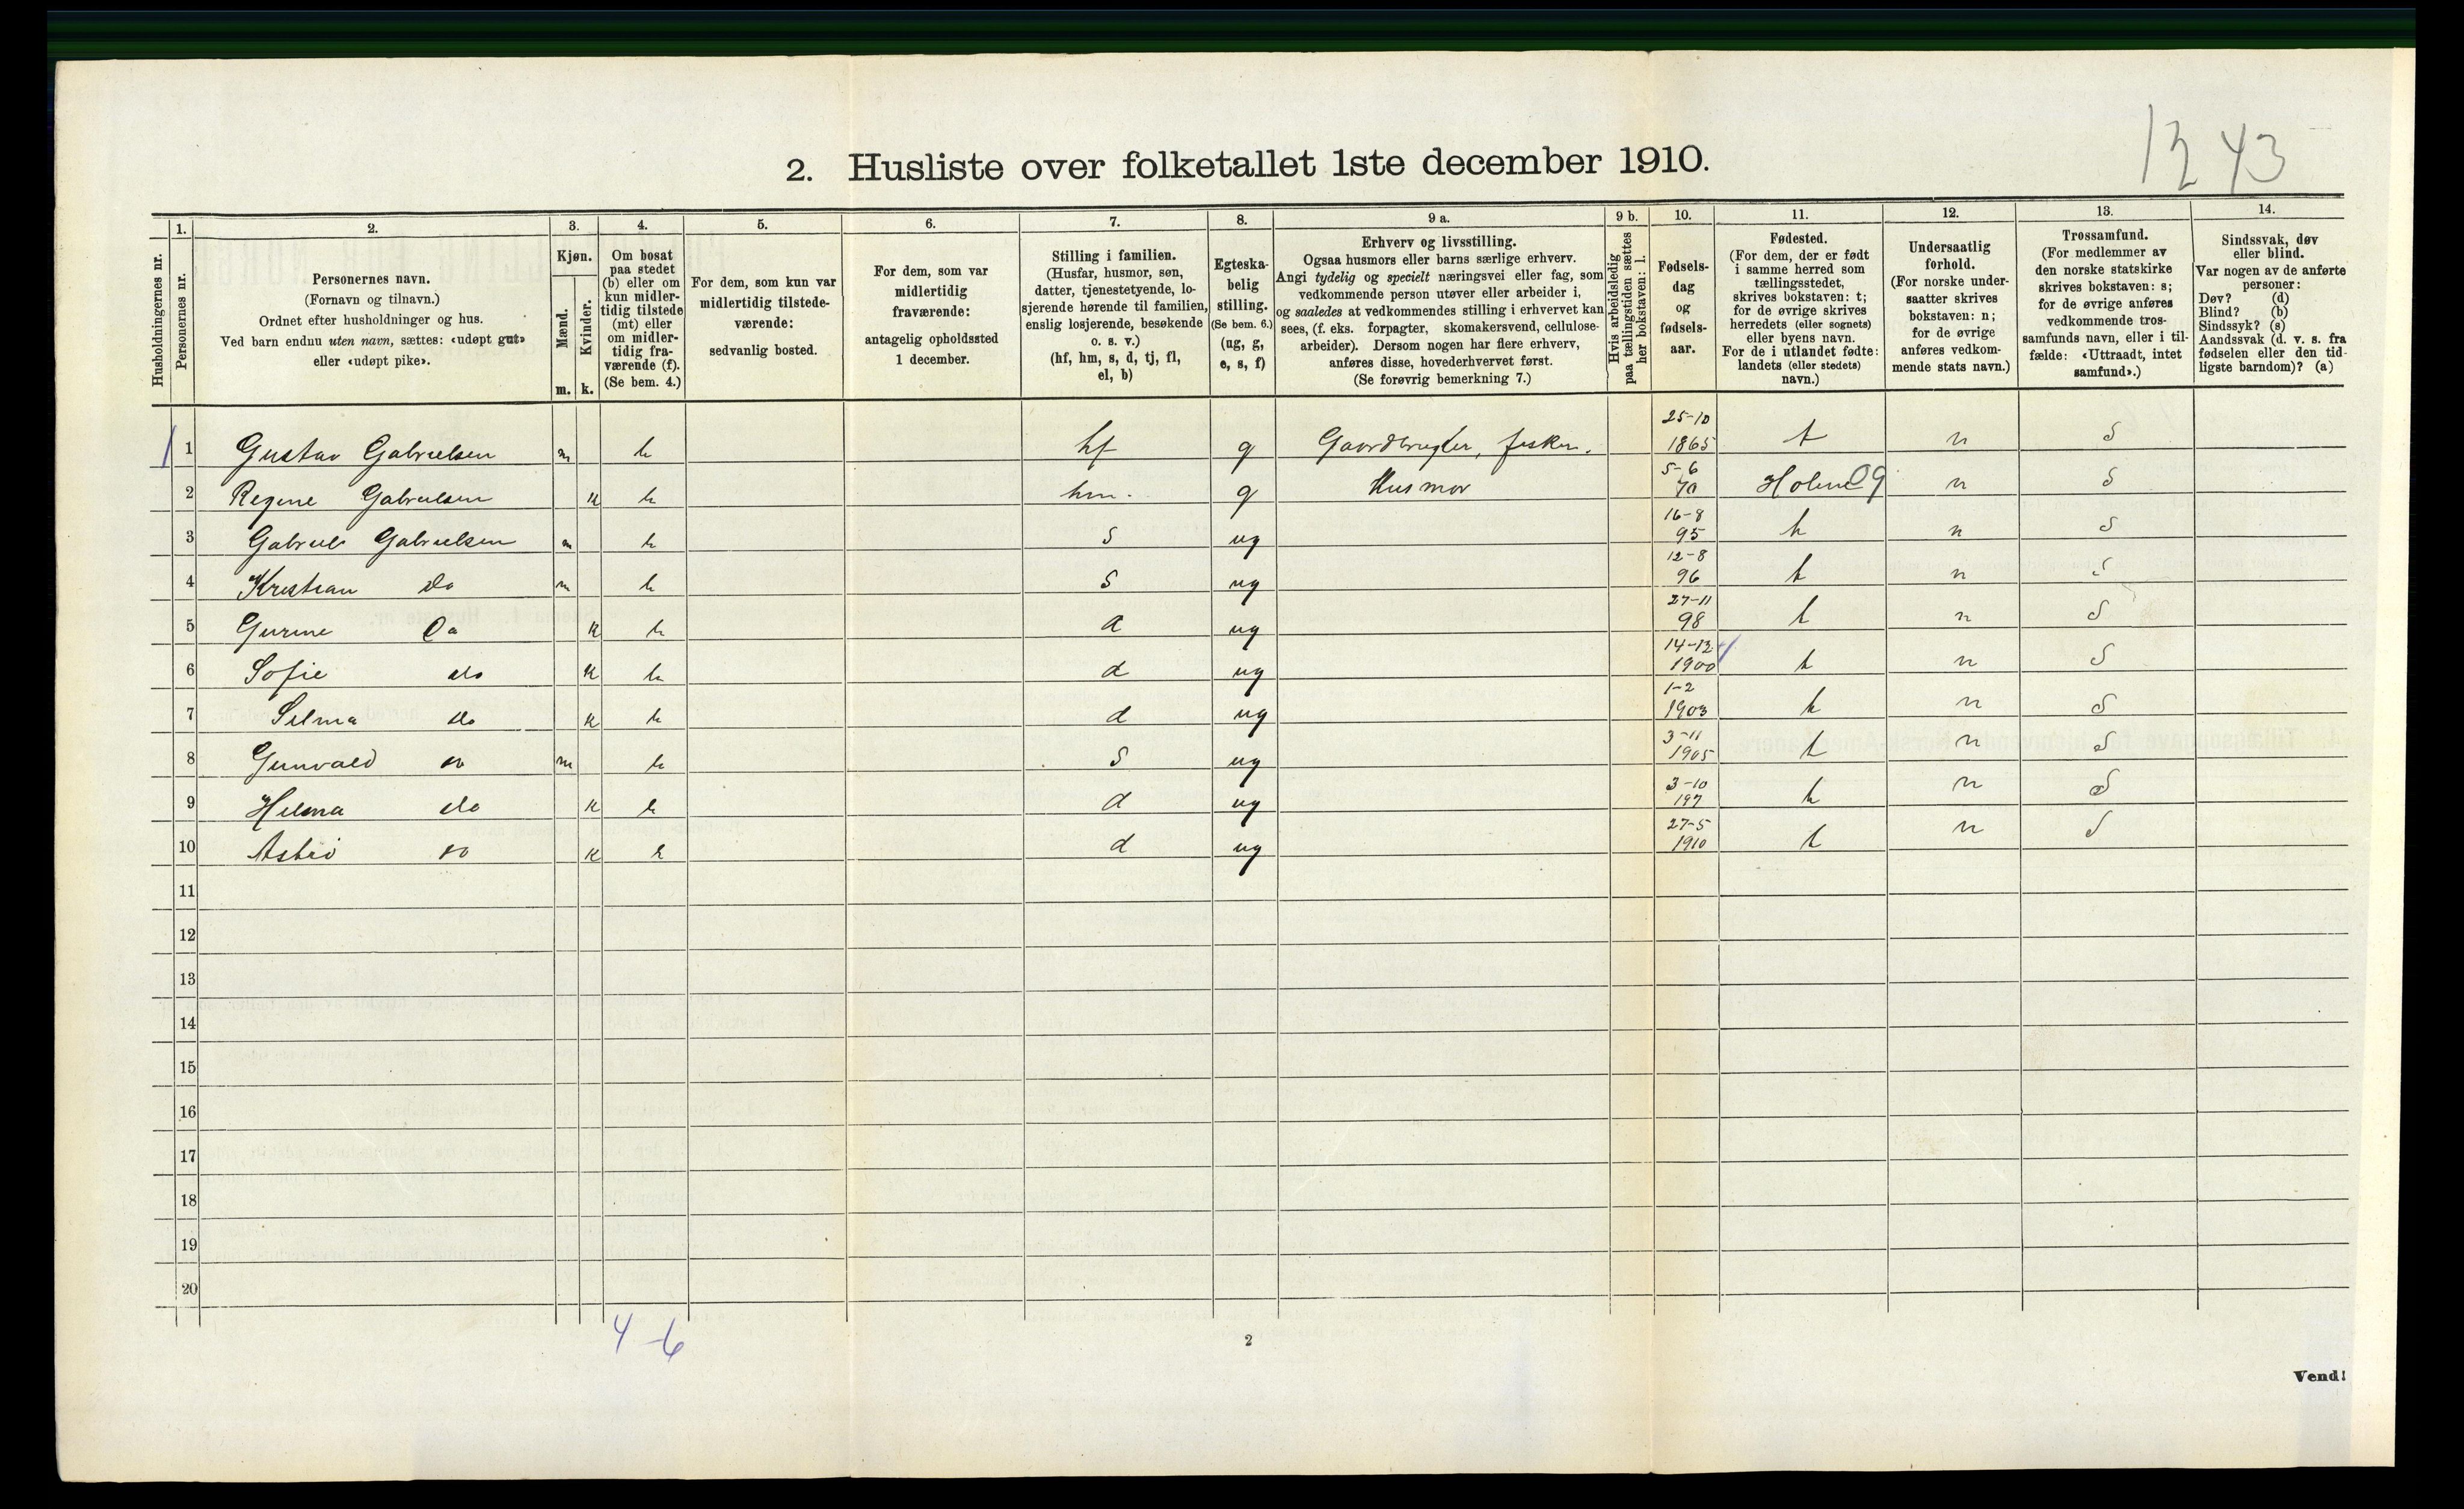 12 43
2. Husliste over folketallet 1ste december 1910.
1. 2. 3. 4. 5. 6. 7. 8. 9 a. 9 b. 10. 11. 12. 13. 14.
Husholdningernes nr.
Personernes nr.
Personernes navn.
(Fornavn og tilnavn.)
Ordnet efter husholdninger og hus.
Ved barn endnu uten navn, sættes: «udøpt gut»
eller «udøpt pike».
Kjøn.
Mænd.
Kvinder.
m. k.
Om bosat
paa stedet
(b) eller om
kun midler-
tidig tilstede
(mt) eller
om midler-
tidig fra-
værende (f).
(Se bem. 4.)
For dem, som kun var
midlertidig tilstede-
værende:
sedvanlig bosted.
For dem, som var
midlertidig
fraværende:
antagelig opholdssted
1 december.
Stilling i familien.
(Husfar, husmor, søn,
datter, tjenestetyende, lo-
sjerende hørende til familien,
enslig losjerende, besøkende
o. s. v.)
(hf, hm, s, d, tj, fl,
el, b)
Egteska-
belig
stilling.
(Se bem. 6.)
(ug, g,
e, s, f)
Erhverv og livsstilling.
Ogsaa husmors eller barns særlige erhverv.
Angi tydelig og specielt næringsvei eller fag, som
vedkommende person utøver eller arbeider i,
og saaledes at vedkommendes stilling i erhvervet kan
sees, (f. eks. forpagter, skomakersvend, cellulose-
arbeider). Dersom nogen har flere erhverv,
anføres disse, hovederhvervet først.
(Se forøvrig bemerkning 7.)
Hvis arbeidsledig
paa tællingstiden sættes
her bokstaven: l.
Fødsels-
dag
og
fødsels-
aar.
Fødested.
(For dem, der er født
i samme herred som
tællingsstedet,
skrives bokstaven: t;
for de øvrige skrives
herredets (eller sognets)
eller byens navn.
For de i utlandet fødte:
landets (eller stedets)
navn.)
Undersaatlig
forhold.
(For norske under-
saatter skrives
bokstaven: n;
for de øvrige
anføres vedkom-
mende stats navn.)
Trossamfund.
(For medlemmer av
den norske statskirke
skrives bokstaven: s;
for de øvrige anføres
vedkommende tros-
samfunds navn, eller i til-
fælde: «Uttraadt, intet
samfund».)
Sindssvak, døv
eller blind.
Var nogen av de anførte
personer:
Døv? (d)
Blind? (b)
Sindssyk? (s)
Aandssvak (d. v. s. fra
fødselen eller den tid-
ligste barndom)? (a)
1 1 Gustav Gabrielsen m b hf g Gaardbruger, fisker. 25-10 1865 t n S
2 Regine Gabrielsen k b hm. g Husmor 5-6 70 Holme 09 n S
3 Gabriel Gabrielsen m b S ug 16-8 95 t n S
4 Kristian do m b S ug 12-8 96 t n S
5 Gurine Do k b d ug 27-11 98 t n S
6 Sofie do k b d ug 14-12 1900 t n S
7 Selma do k b d ug 1-2 1903 t n S
8 Gunvald do m b S ug 3-11 1905 t n S
9 Helma do k b d ug 3-10 197 t n S
10 do k b d ug 27-5 1910 t n S
11
12
13
14
15
16
17
18
19
20
4-6
2
Vend!